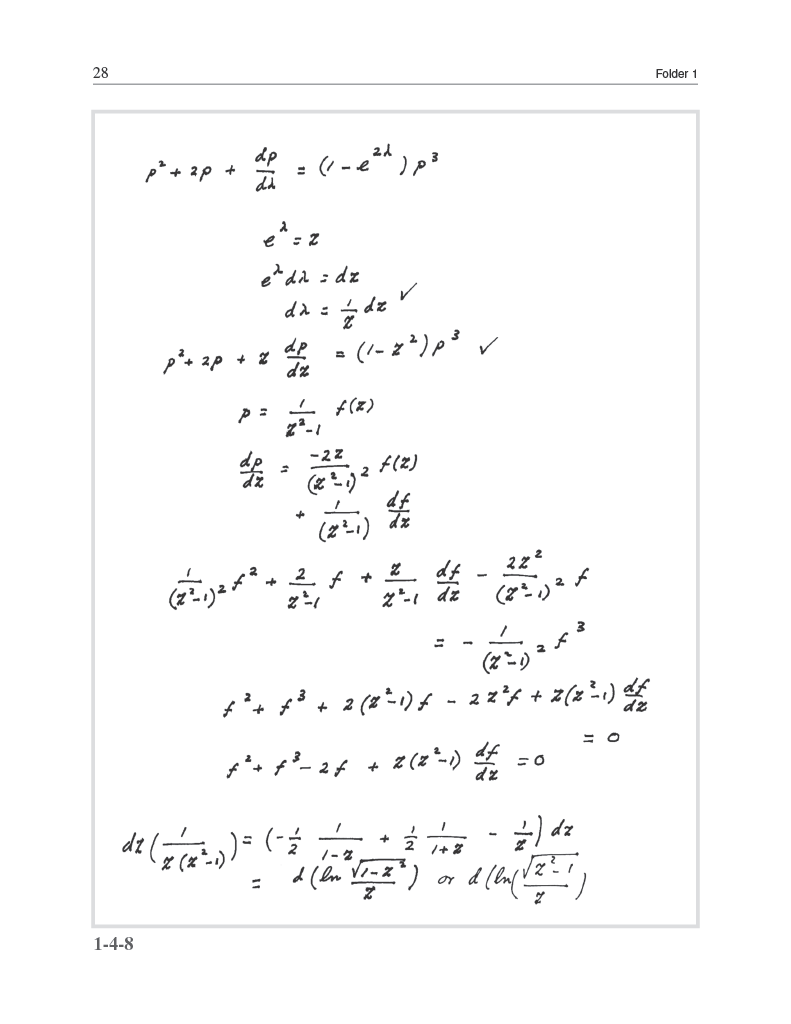 28 Folder 1
p² + 2p + dp/dλ = (1 - e^{2λ}) p³
e^λ = z
e^λ dλ = dz
dλ = 1/z dz ✓
p² + 2p + z dp/dz = (1 - z²) p³ ✓
p = 1/(z²-1) f(z)
dp/dz = -2z/(z²-1)² f(z)
+ 1/(z²-1) df/dz
1/(z²-1)² f² + 2/(z²-1) f + z/(z²-1) df/dz - 2z²/(z²-1)² f
= - 1/(z²-1)² f³
f² + f³ + 2(z²-1) f - 2z²f + z(z²-1) df/dz
= 0
f² + f³ - 2f + z(z²-1) df/dz = 0
dz (1/(z(z²-1))) = (-1/2 1/(1-z) + 1/2 1/(1+z) - 1/z) dz
= d (ln √(1-z²)/z) or d (ln (√(z²-1)/z)
1-4-8